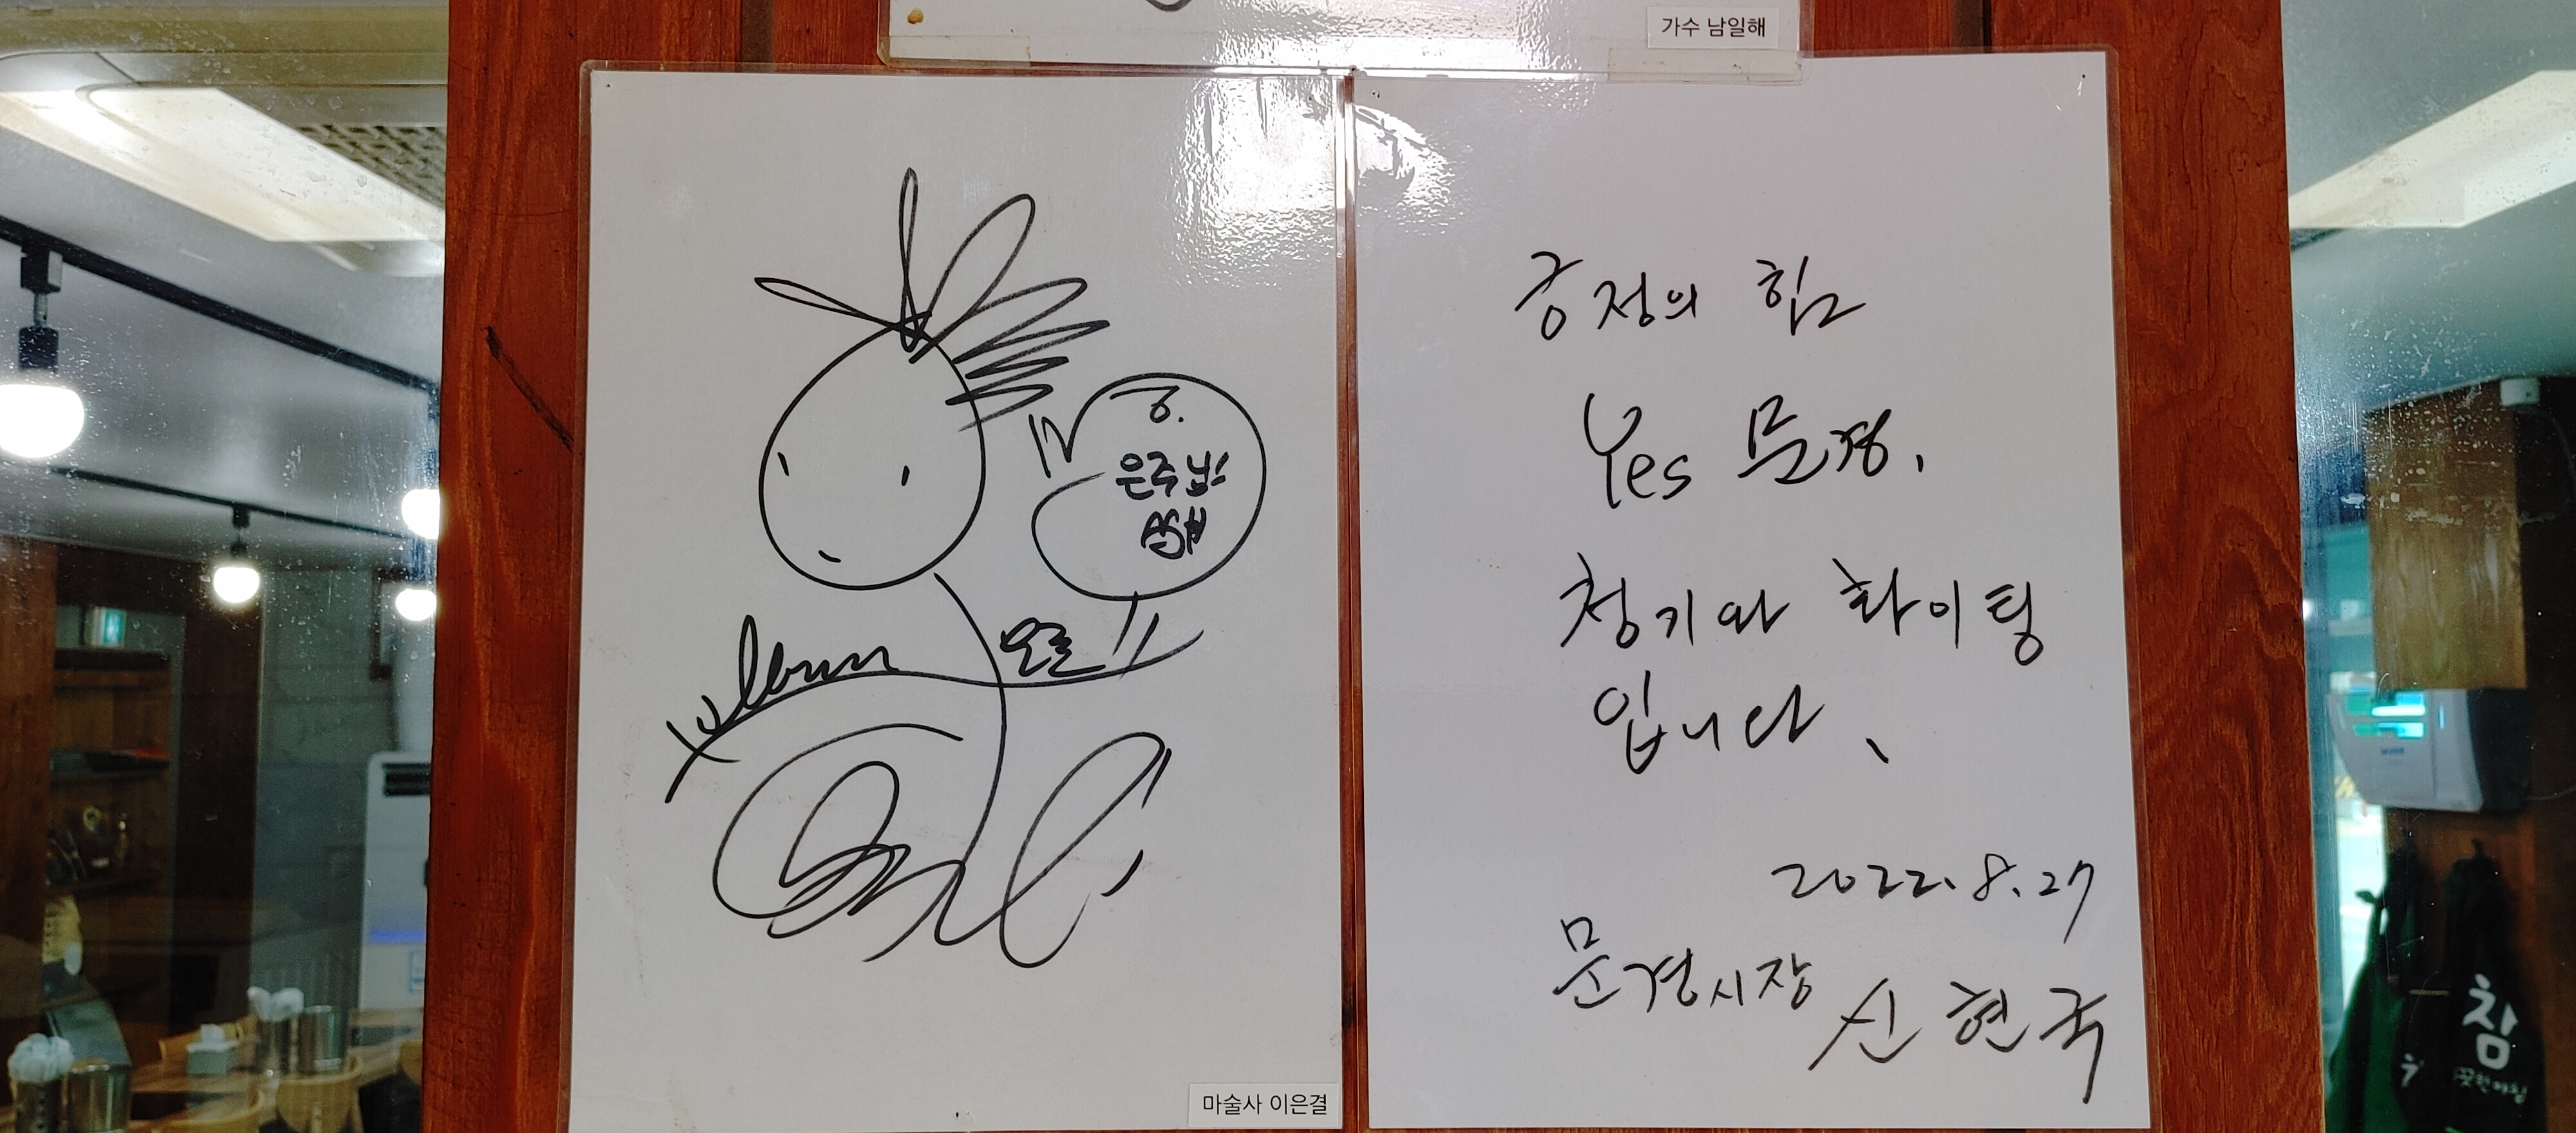 가수 남일해
은주님!
마술사 이은결
긍정의 힘
Yes 문경.
청기와 화이팅
입니다.
2022. 8. 27
문경시장 신현국
참